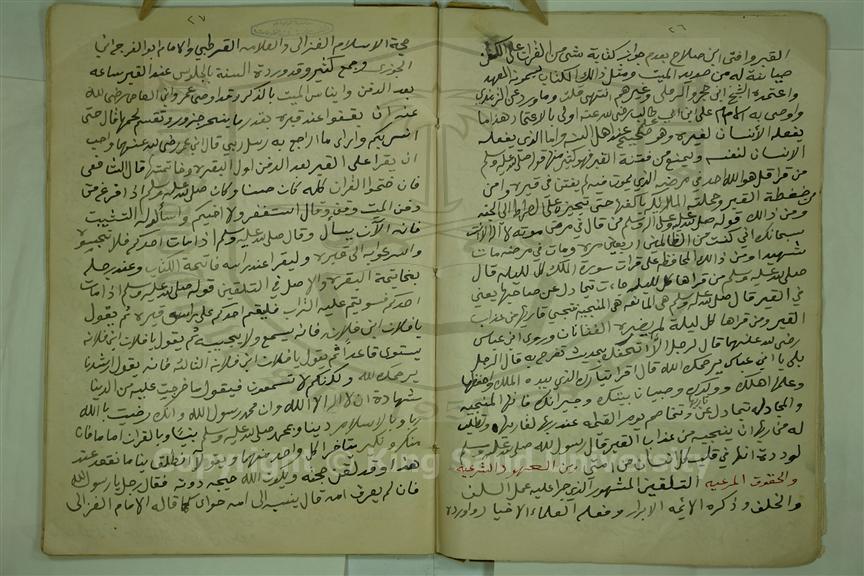 ٢٦
القبر وافتى ابن صلاح بعدم جواز كتابة شي من القرآن على الكفن
صيانة له من صديد الميت ومثل ذالك الكتاب يسمونه العهد
واعتمده الشيخ ابن حجر والرملي وغيرهم انتهى قلت وما ورد عن الترمذي
واوصى به الامام علي ابن ابي طالب رضي الله عنه اولى بالاعتماد هذا ما
يفعله الانسان لغيره وهو صحيح عند اهل السنه واما الذي يفعله
الانسان لنفسه ويمنع من فتنة القبر فهو كثير منها قوله صلى الله عليه وسلم
من قرا قل هو الله احد في مرضه الذي يموت فيه لم يفتن في قبره وامن
من ضغطة القبر وحملته الملائكة باكفها حتى تجيزه على الصراط الى الجنه
ومن ذالك قوله صلى الله عليه وسلم من قال في مرض موته لا اله الا انت
سبحانك اني كنت من الظالمين اربعين مره ومات في مرضه مات
شهيدا ومن ذالك الحافظ على قرات سورة الملك كل ليله قال
صلى الله عليه وسلم من قراها كل ليلة جاءت تجادل عن صاحبها يعني
في القبر قال صلى الله عليه وسلم هي المانعه هي المنجيه تنجي قاريها من عذاب
القبر ومن قراها كل ليلة لم يضره الفتانان وروى ابن عباس
رضي الله عنهما قال لرجل الا اتحفك بحديث تفرح به قال الرجل
بلى يا ابن عباس يرحمك الله قال اقرا تبارك الذي بيده الملك واحفظها
وعلمها اهلك وولدك وصبيان بيتك وجيرانك فانها المنجيه
والمجادله تجادل عن قاريها وتخاصم يوم القيمه عند ربها لقاريها وتطلب
له من ربها ان ينجيه من عذاب القبر قال رسول الله صلى الله عليه وسلم
لوددت انها في قلب كل انسان من امتي ومن العهود الشرعيه
والحقوق المرعيه التلقين المشهور الذي جرا عليه عمل السلف
والخلف وذكره الائمه الابرار وفعله العلماء الاخيار واورده
٢٧
حجة الاسلام الغزالي والعلامه القرطبي والامام ابو الفرج ابن
الجوزي وجمع كثير وقد وردة السنة بالجلوس عند القبر ساعه
بعد الدفن وايناس الميت بالذكر وقد اوصى عمرو ابن العاص رضي الله
عنه ان يقفوا عند قبره بقدر ما ينحر جزور وتقسم لحمها قال حتى
انس بكم وارى ما اراجع به رسل ربي قال ابن عمر رضي الله عنهما واحب
ان يقرا على القبر بعد الدفن اول البقره وخاتمتها قال الشافعي
فان ختموا القران كله كان حسنا وكان صلى الله عليه وسلم اذا فرغ من
دفن الميت وقف وقال استغفرو لاخيكم واسألو له التثبيت
فانه الآن يسال وقال صلى الله عليه وسلم اذا مات احدكم فلا تحبسوه
واسرعو به الى قبره وليقرا عند راسه فاتحة الكتاب وعند رجليه
بخاتمة البقره والاصل في التلقين قوله صلى الله عليه وسلم اذا مات
احدكم فسويتم عليه التراب فليقم احدكم على راس قبره ثم يقول
يا فلان ابن فلانه فانه يسمع ولا يجيبه ثم يقول يا فلان ابن فلانه
يستوي قاعداً ثم يقول يا فلان ابن فلانه الثالثه فانه يقول ارشدنا
يرحمك الله ولكنكم لا تسمعون فيقول ما خرجت عليه من الدنيا
شهادة ان لا اله الا الله وان محمد رسول الله وانك رضيت بالله
ربا وبالاسلام دينا وبمحمد صلى الله عليه وسلم نبيا وبالقران اماما فان
منكر ونكير يتاخرا كل واحد منهما ويقول انطلق بنا ما نقعد عند
هذا وقد لقن حجته ويكون الله حجيجه دونه فقال رجل يا رسول الله
فان لم يعرف امه قال ينسبه الى امه حوى كما قاله الامام الغزالي
Copyright © King Saud University